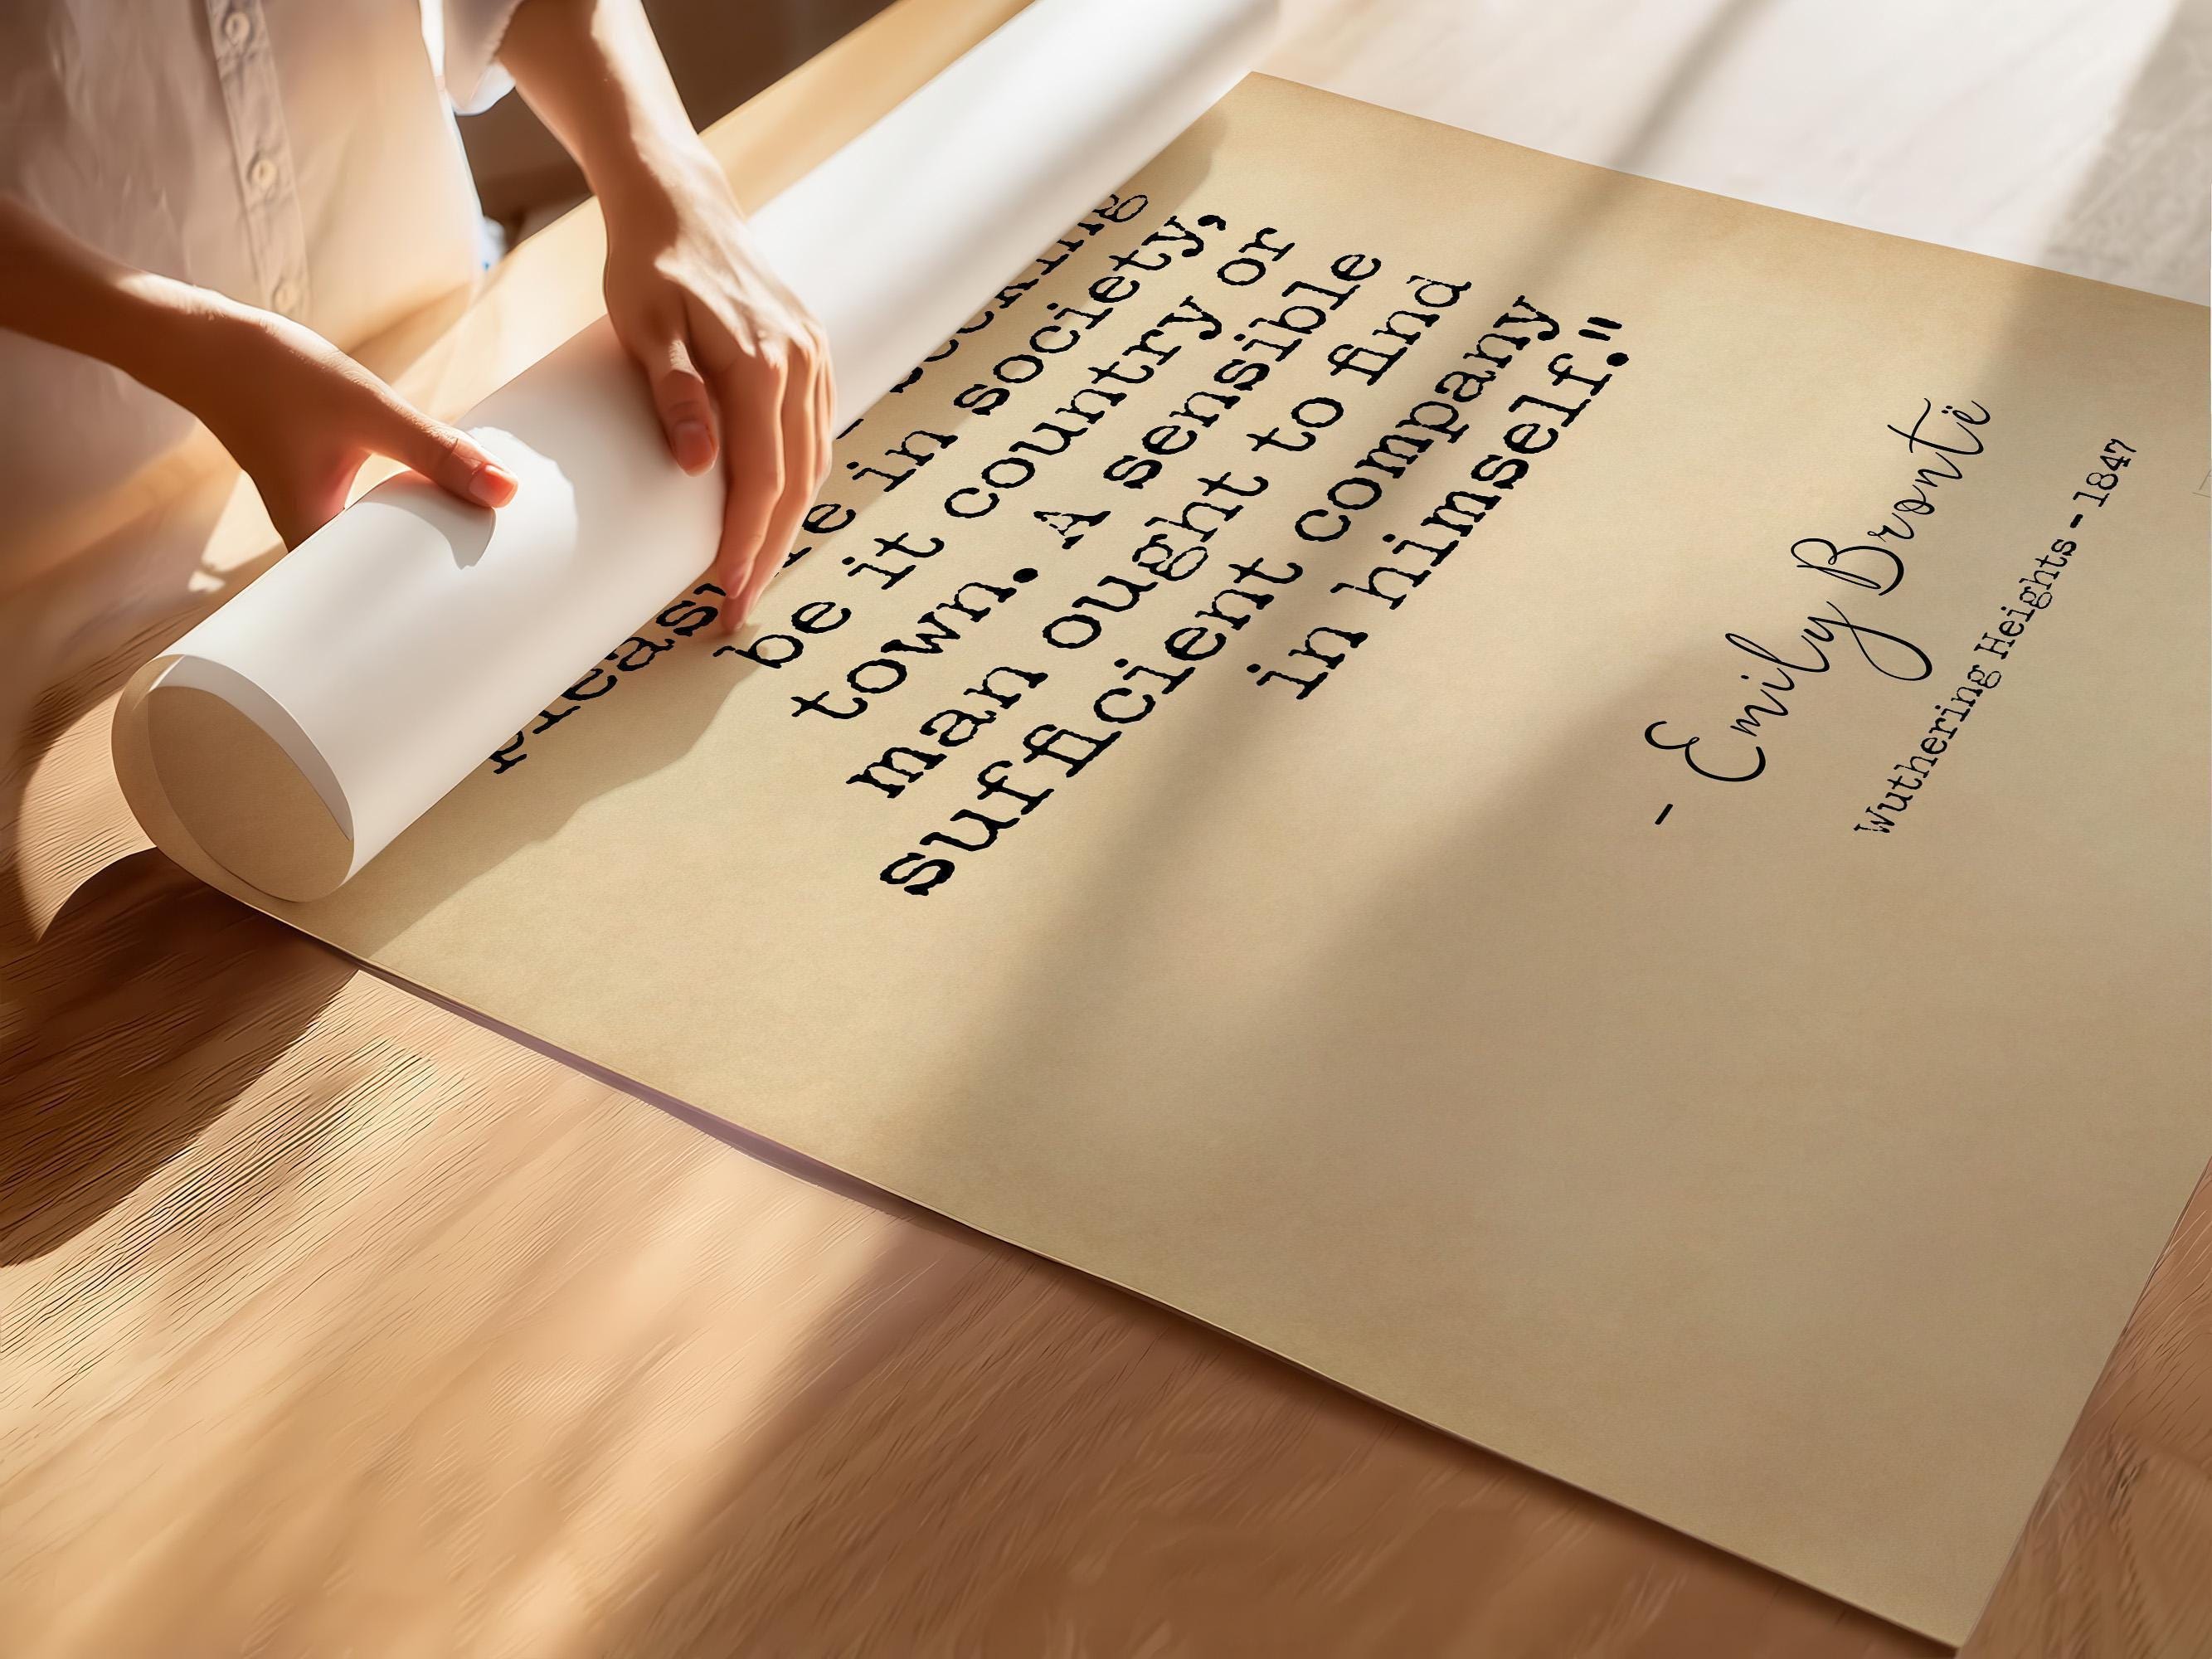 in society,
be it country or
town. A sensible
man ought to find
sufficient company
in himself."
- Emily Brontë
Wuthering Heights - 1847